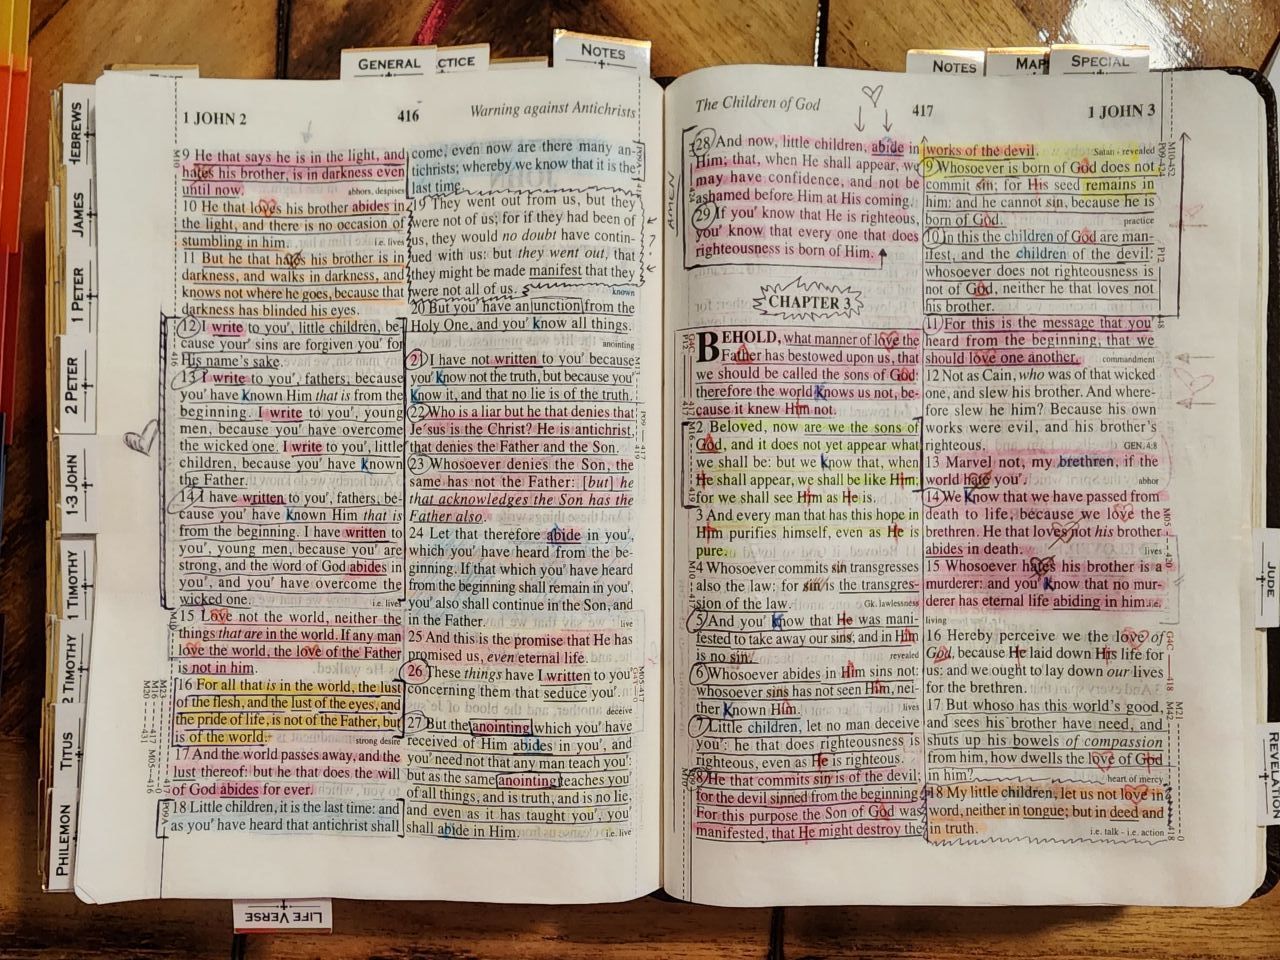 GENERAL
CTICE
NOTES
NOTES
MAP
SPECIAL
HEBREWS
JAMES
1 PETER
2 PETER
1-3 JOHN
1 TIMOTHY
2 TIMOTHY
TITUS
PHILEMON
LIFE VERSE
JUDE
REVELATION
1 JOHN 2
416
Warning against Antichrists
9 He that says he is in the light, and
hates his brother, is in darkness even
until now.
abhors, despises
10 He that loves his brother abides in
the light, and there is no occasion of
stumbling in him.
i.e. lives
11 But he that hates his brother is in
darkness, and walks in darkness, and
knows not where he goes, because that
darkness has blinded his eyes.
12 I write to you', little children, be-
cause your' sins are forgiven you' for
His name's sake.
13 I write to you', fathers, because
you' have known Him that is from the
beginning. I write to you', young
men, because you' have overcome
the wicked one. I write to you', little
children, because you' have known
the Father.
14 I have written to you', fathers, be-
cause you' have known Him that is
from the beginning. I have written to
you', young men, because you' are
strong, and the word of God abides in
you', and you' have overcome the
wicked one.
i.e. lives
15 Love not the world, neither the
things that are in the world. If any man
love the world, the love of the Father
is not in him.
16 For all that is in the world, the lust
of the flesh, and the lust of the eyes, and
the pride of life, is not of the Father, but
is of the world.
strong desire
17 And the world passes away, and the
lust thereof: but he that does the will
of God abides for ever.
18 Little children, it is the last time: and
as you' have heard that antichrist shall
come, even now are there many an-
tichrists; whereby we know that it is the
last time.
19 They went out from us, but they
were not of us; for if they had been of
us, they would no doubt have contin-
ued with us: but they went out, that
they might be made manifest that they
were not all of us.
known
20 But you' have an unction from the
Holy One, and you' know all things.
anointing
21 I have not written to you' because
you' know not the truth, but because you'
know it, and that no lie is of the truth.
22 Who is a liar but he that denies that
Je'sus is the Christ? He is antichrist,
that denies the Father and the Son.
23 Whosoever denies the Son, the
same has not the Father: [but] he
that acknowledges the Son has the
Father also.
24 Let that therefore abide in you',
which you' have heard from the be-
ginning. If that which you' have heard
from the beginning shall remain in you',
you' also shall continue in the Son, and
in the Father.
live
25 And this is the promise that He has
promised us, even eternal life.
26 These things have I written to you'
concerning them that seduce you'.
deceive
27 But the anointing which you' have
received of Him abides in you', and
you' need not that any man teach you':
but as the same anointing teaches you'
of all things, and is truth, and is no lie,
and even as it has taught you', you'
shall abide in Him.
i.e. live
The Children of God
417
1 JOHN 3
AMEN
28 And now, little children, abide in
Him; that, when He shall appear, we
may have confidence, and not be
ashamed before Him at His coming.
29 If you' know that He is righteous,
you' know that every one that does
righteousness is born of Him.
CHAPTER 3
BEHOLD, what manner of love the
Father has bestowed upon us, that
we should be called the sons of God:
therefore the world knows us not, be-
cause it knew Him not.
2 Beloved, now are we the sons of
God, and it does not yet appear what
we shall be: but we know that, when
He shall appear, we shall be like Him;
for we shall see Him as He is.
3 And every man that has this hope in
Him purifies himself, even as He is
pure.
4 Whosoever commits sin transgresses
also the law; for sin is the transgres-
sion of the law.
Gk. lawlessness
5 And you' know that He was mani-
fested to take away our sins; and in Him
is no sin.
revealed
6 Whosoever abides in Him sins not:
whosoever sins has not seen Him, nei-
ther known Him.
lives
7 Little children, let no man deceive
you': he that does righteousness is
righteous, even as He is righteous.
8 He that commits sin is of the devil;
for the devil sinned from the beginning.
For this purpose the Son of God was
manifested, that He might destroy the
works of the devil.
Satan - revealed
9 Whosoever is born of God does not
commit sin; for His seed remains in
him: and he cannot sin, because he is
born of God.
practice
10 In this the children of God are man-
ifest, and the children of the devil:
whosoever does not righteousness is
not of God, neither he that loves not
his brother.
11 For this is the message that you'
heard from the beginning, that we
should love one another.
commandment
12 Not as Cain, who was of that wicked
one, and slew his brother. And where-
fore slew he him? Because his own
works were evil, and his brother's
righteous.
GEN. 4:8
13 Marvel not, my brethren, if the
world hate you'.
abhor
14 We know that we have passed from
death to life, because we love the
brethren. He that loves not his brother
abides in death.
lives
15 Whosoever hates his brother is a
murderer: and you' know that no mur-
derer has eternal life abiding in him.
i.e.
living
16 Hereby perceive we the love of
God, because He laid down His life for
us: and we ought to lay down our lives
for the brethren.
17 But whoso has this world's good,
and sees his brother have need, and
shuts up his bowels of compassion
from him, how dwells the love of God
in him?
heart of mercy
18 My little children, let us not love in
word, neither in tongue; but in deed and
in truth.
i.e. talk - i.e. action